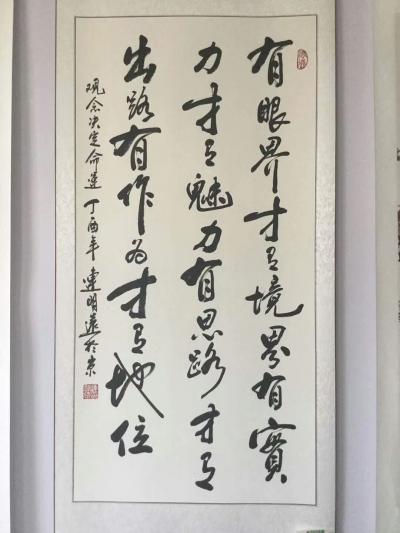 有眼界才有境界有實
力才有魅力有思路才有
出路有作为才有地位
观念决定命运 丁酉年 連明遠於京